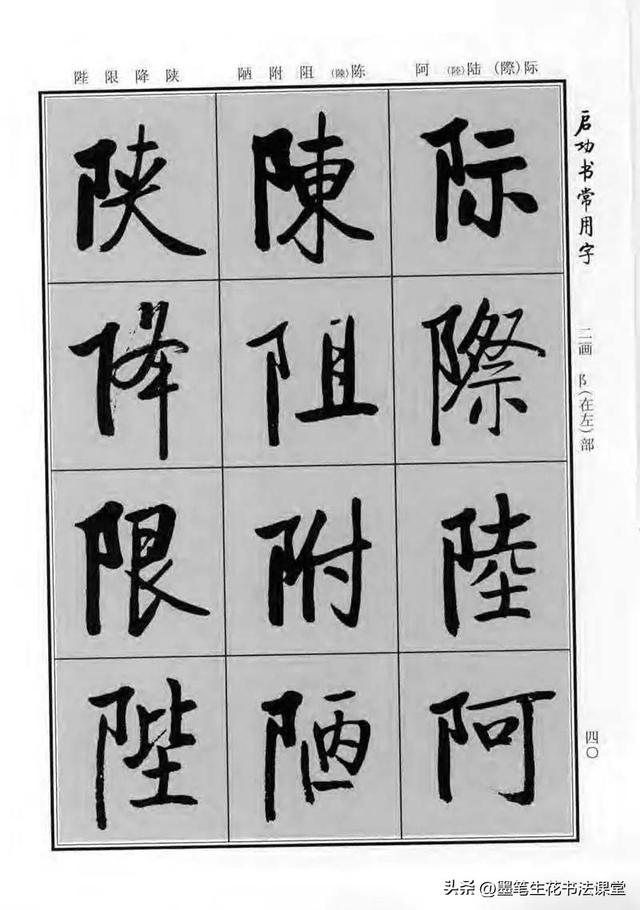 陛 限 降 陕 陋 附 阻 (陳)陈 阿 (陸)陆 (際)际
启功书常用字
二画 阝(在左)部
四〇
际
際
陸
阿
陳
阻
附
陋
陕
降
限
陛
头条 @墨笔生花书法课堂